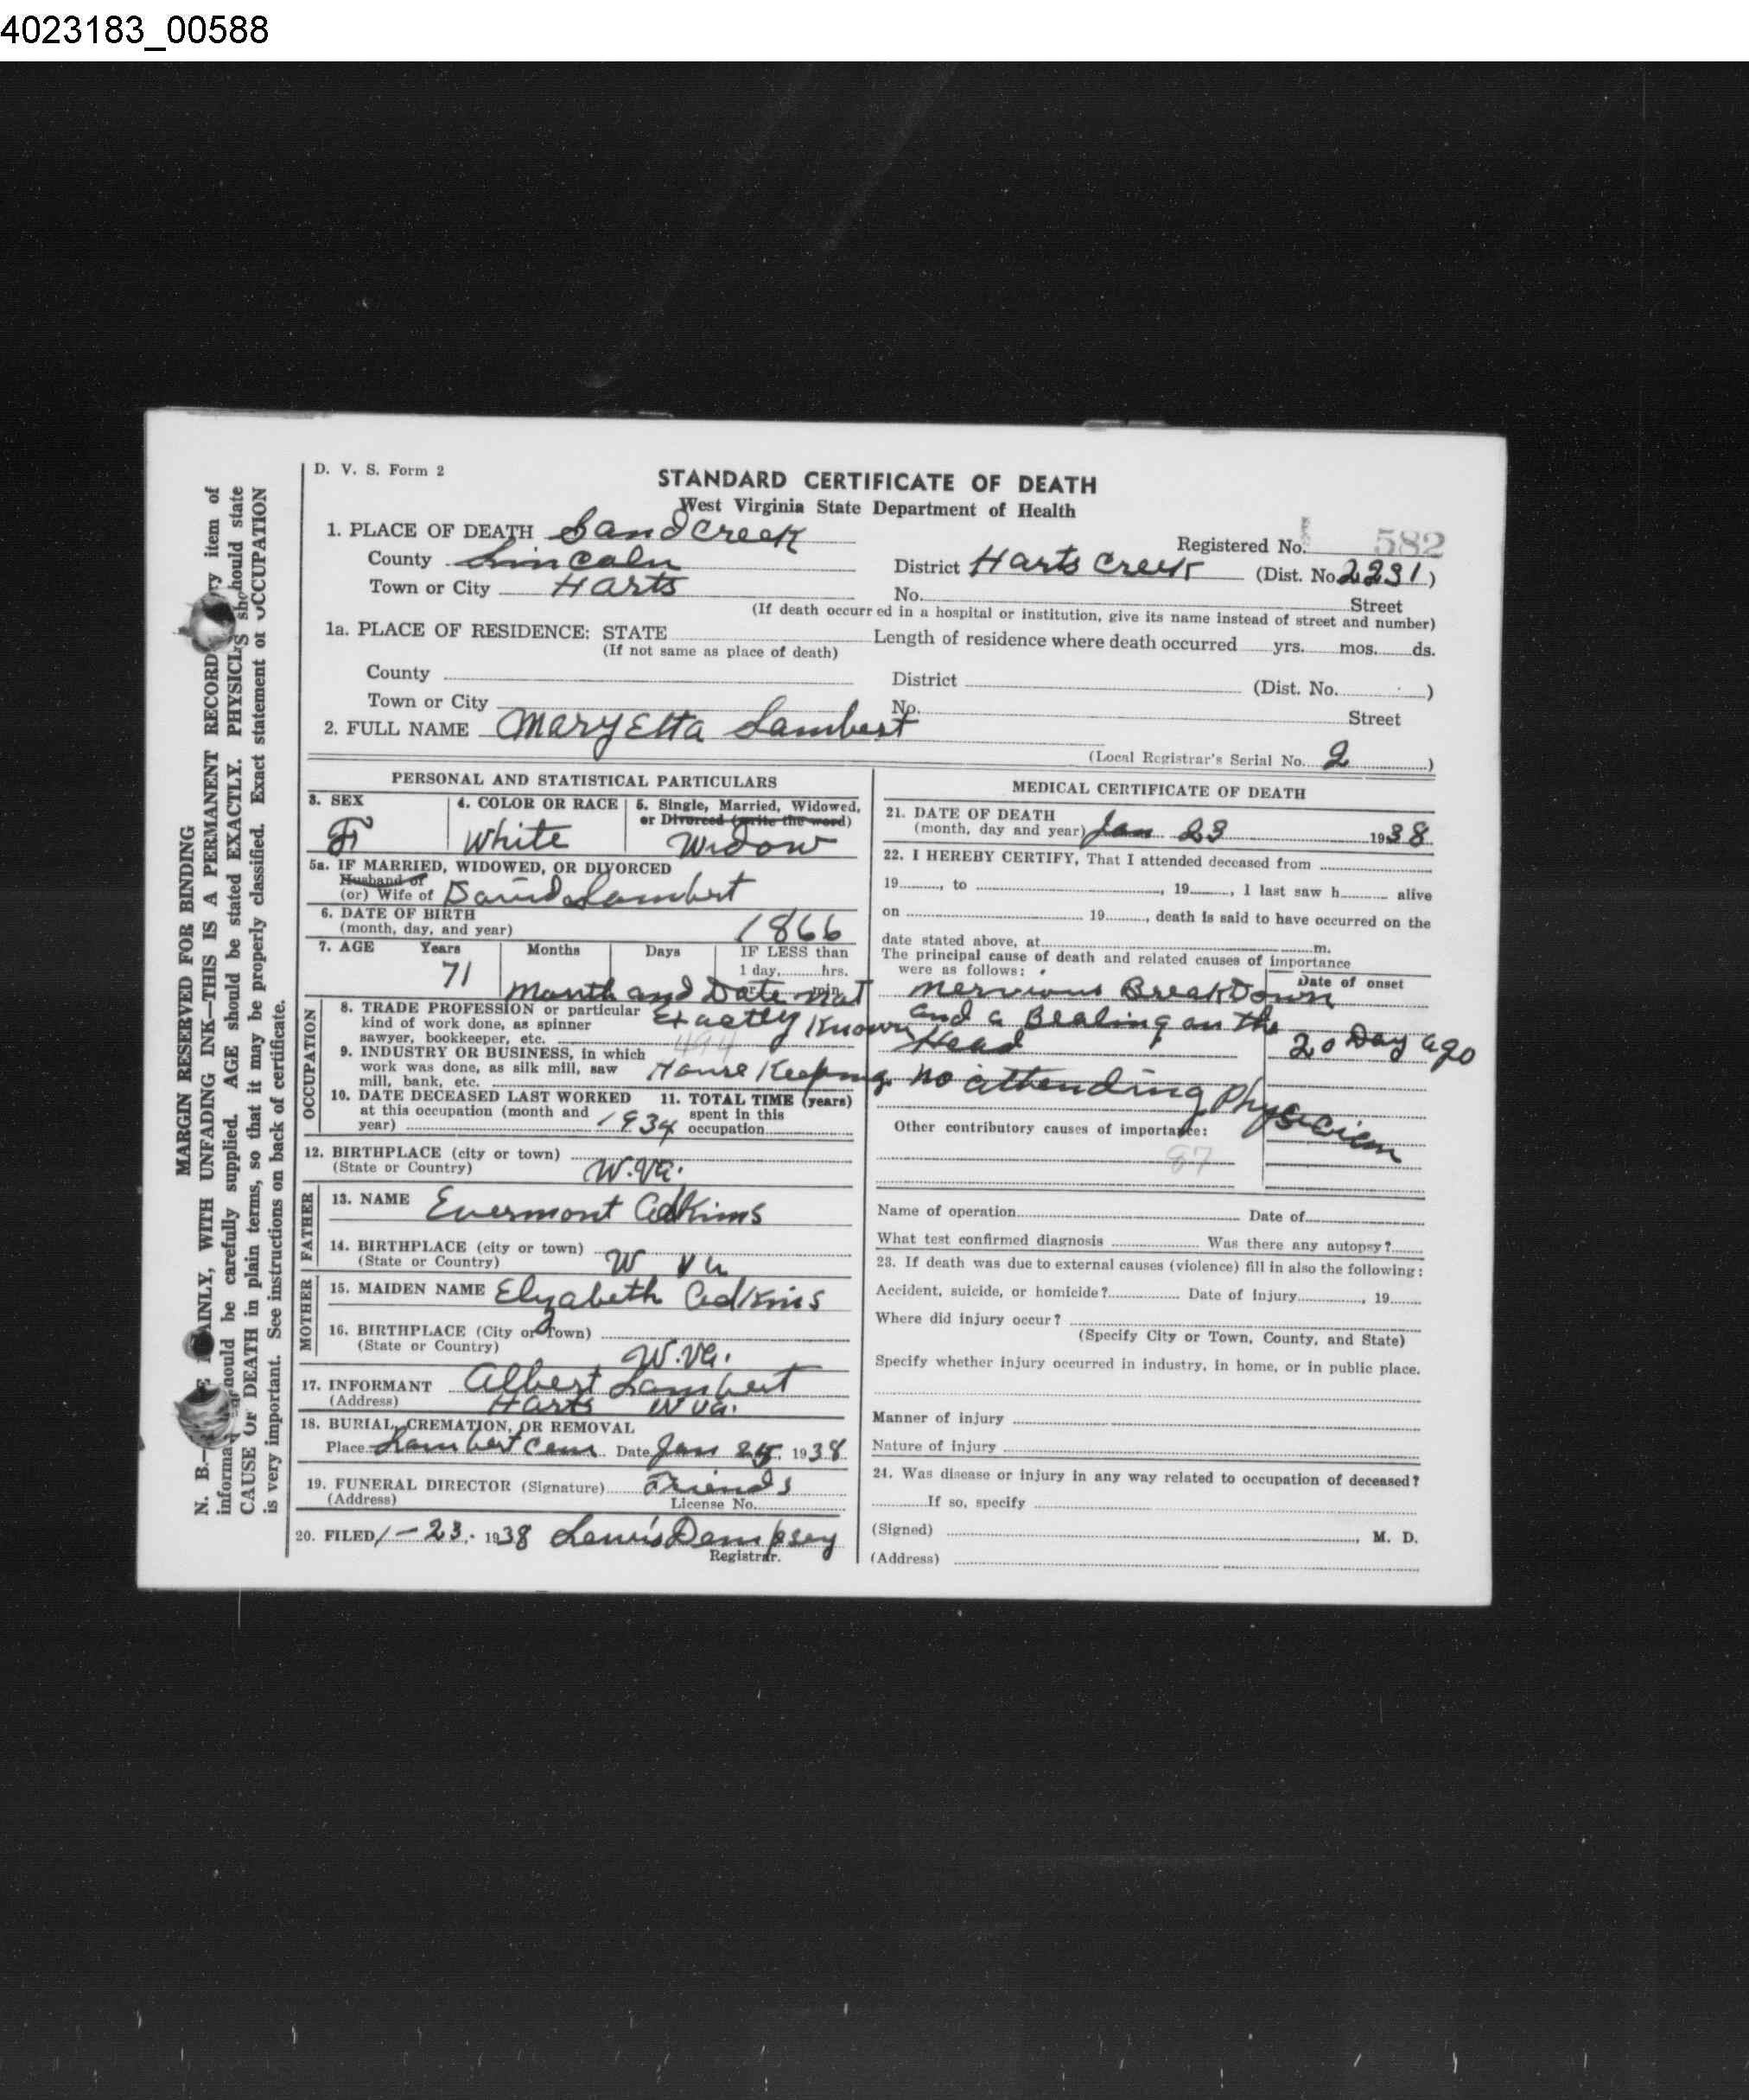 4023183_00588
D. V. S. Form 2
STANDARD CERTIFICATE OF DEATH
West Virginia State Department of Health
1. PLACE OF DEATH Sand Creek
Registered No. 582
County Lincoln
District Harts Creek (Dist. No. 2231)
Town or City Harts
No. Street
(If death occurred in a hospital or institution, give its name instead of street and number)
1a. PLACE OF RESIDENCE: STATE
Length of residence where death occurred yrs. mos. ds.
(If not same as place of death)
County
District (Dist. No. )
Town or City
No. Street
2. FULL NAME Mary Etta Lambert
(Local Registrar's Serial No. 2 )
PERSONAL AND STATISTICAL PARTICULARS
3. SEX
F
4. COLOR OR RACE
White
5. Single, Married, Widowed,
or Divorced (write the word)
Widow
5a. IF MARRIED, WIDOWED, OR DIVORCED
Husband of
(or) Wife of David Lambert
6. DATE OF BIRTH
(month, day, and year) 1866
7. AGE Years Months Days IF LESS than
71 1 day, hrs.
or min.
Month and Date not
Exactly Known
OCCUPATION
8. TRADE PROFESSION or particular
kind of work done, as spinner
sawyer, bookkeeper, etc.
9. INDUSTRY OR BUSINESS, in which
work was done, as silk mill, saw
mill, bank, etc. House Keeping
10. DATE DECEASED LAST WORKED
at this occupation (month and
year) 1934
11. TOTAL TIME (years)
spent in this
occupation
12. BIRTHPLACE (city or town)
(State or Country) W.Va.
FATHER
13. NAME Evermont Adkins
14. BIRTHPLACE (city or town)
(State or Country) W Va
MOTHER
15. MAIDEN NAME Elyzabeth Adkins
16. BIRTHPLACE (City or Town)
(State or Country) W.Va.
17. INFORMANT Albert Lambert
(Address) Harts W Va.
18. BURIAL, CREMATION, OR REMOVAL
Place Lambert Cem Date Jan 25, 1938
19. FUNERAL DIRECTOR (Signature) Friends
(Address) License No.
20. FILED 1-23. 1938 Lewis Dempsey
Registrar.
MEDICAL CERTIFICATE OF DEATH
21. DATE OF DEATH
(month, day and year) Jan 23 1938
22. I HEREBY CERTIFY, That I attended deceased from
19 , to , 19 , I last saw h alive
on 19 , death is said to have occurred on the
date stated above, at m.
The principal cause of death and related causes of importance
were as follows: Date of onset
Nervious BreakDown
and a Bealing on the
Head 20 Day ago
no attending Physician
Other contributory causes of importance:
87
Name of operation Date of
What test confirmed diagnosis Was there any autopsy?
23. If death was due to external causes (violence) fill in also the following:
Accident, suicide, or homicide? Date of injury , 19
Where did injury occur?
(Specify City or Town, County, and State)
Specify whether injury occurred in industry, in home, or in public place.
Manner of injury
Nature of injury
24. Was disease or injury in any way related to occupation of deceased?
If so, specify
(Signed) , M. D.
(Address)
MARGIN RESERVED FOR BINDING
N. B.— AINLY, WITH UNFADING INK—THIS IS A PERMANENT RECORD ry item of
informa should be carefully supplied. AGE should be stated EXACTLY. PHYSICI S should state
CAUSE OF DEATH in plain terms, so that it may be properly classified. Exact statement of OCCUPATION
is very important. See instructions on back of certificate.